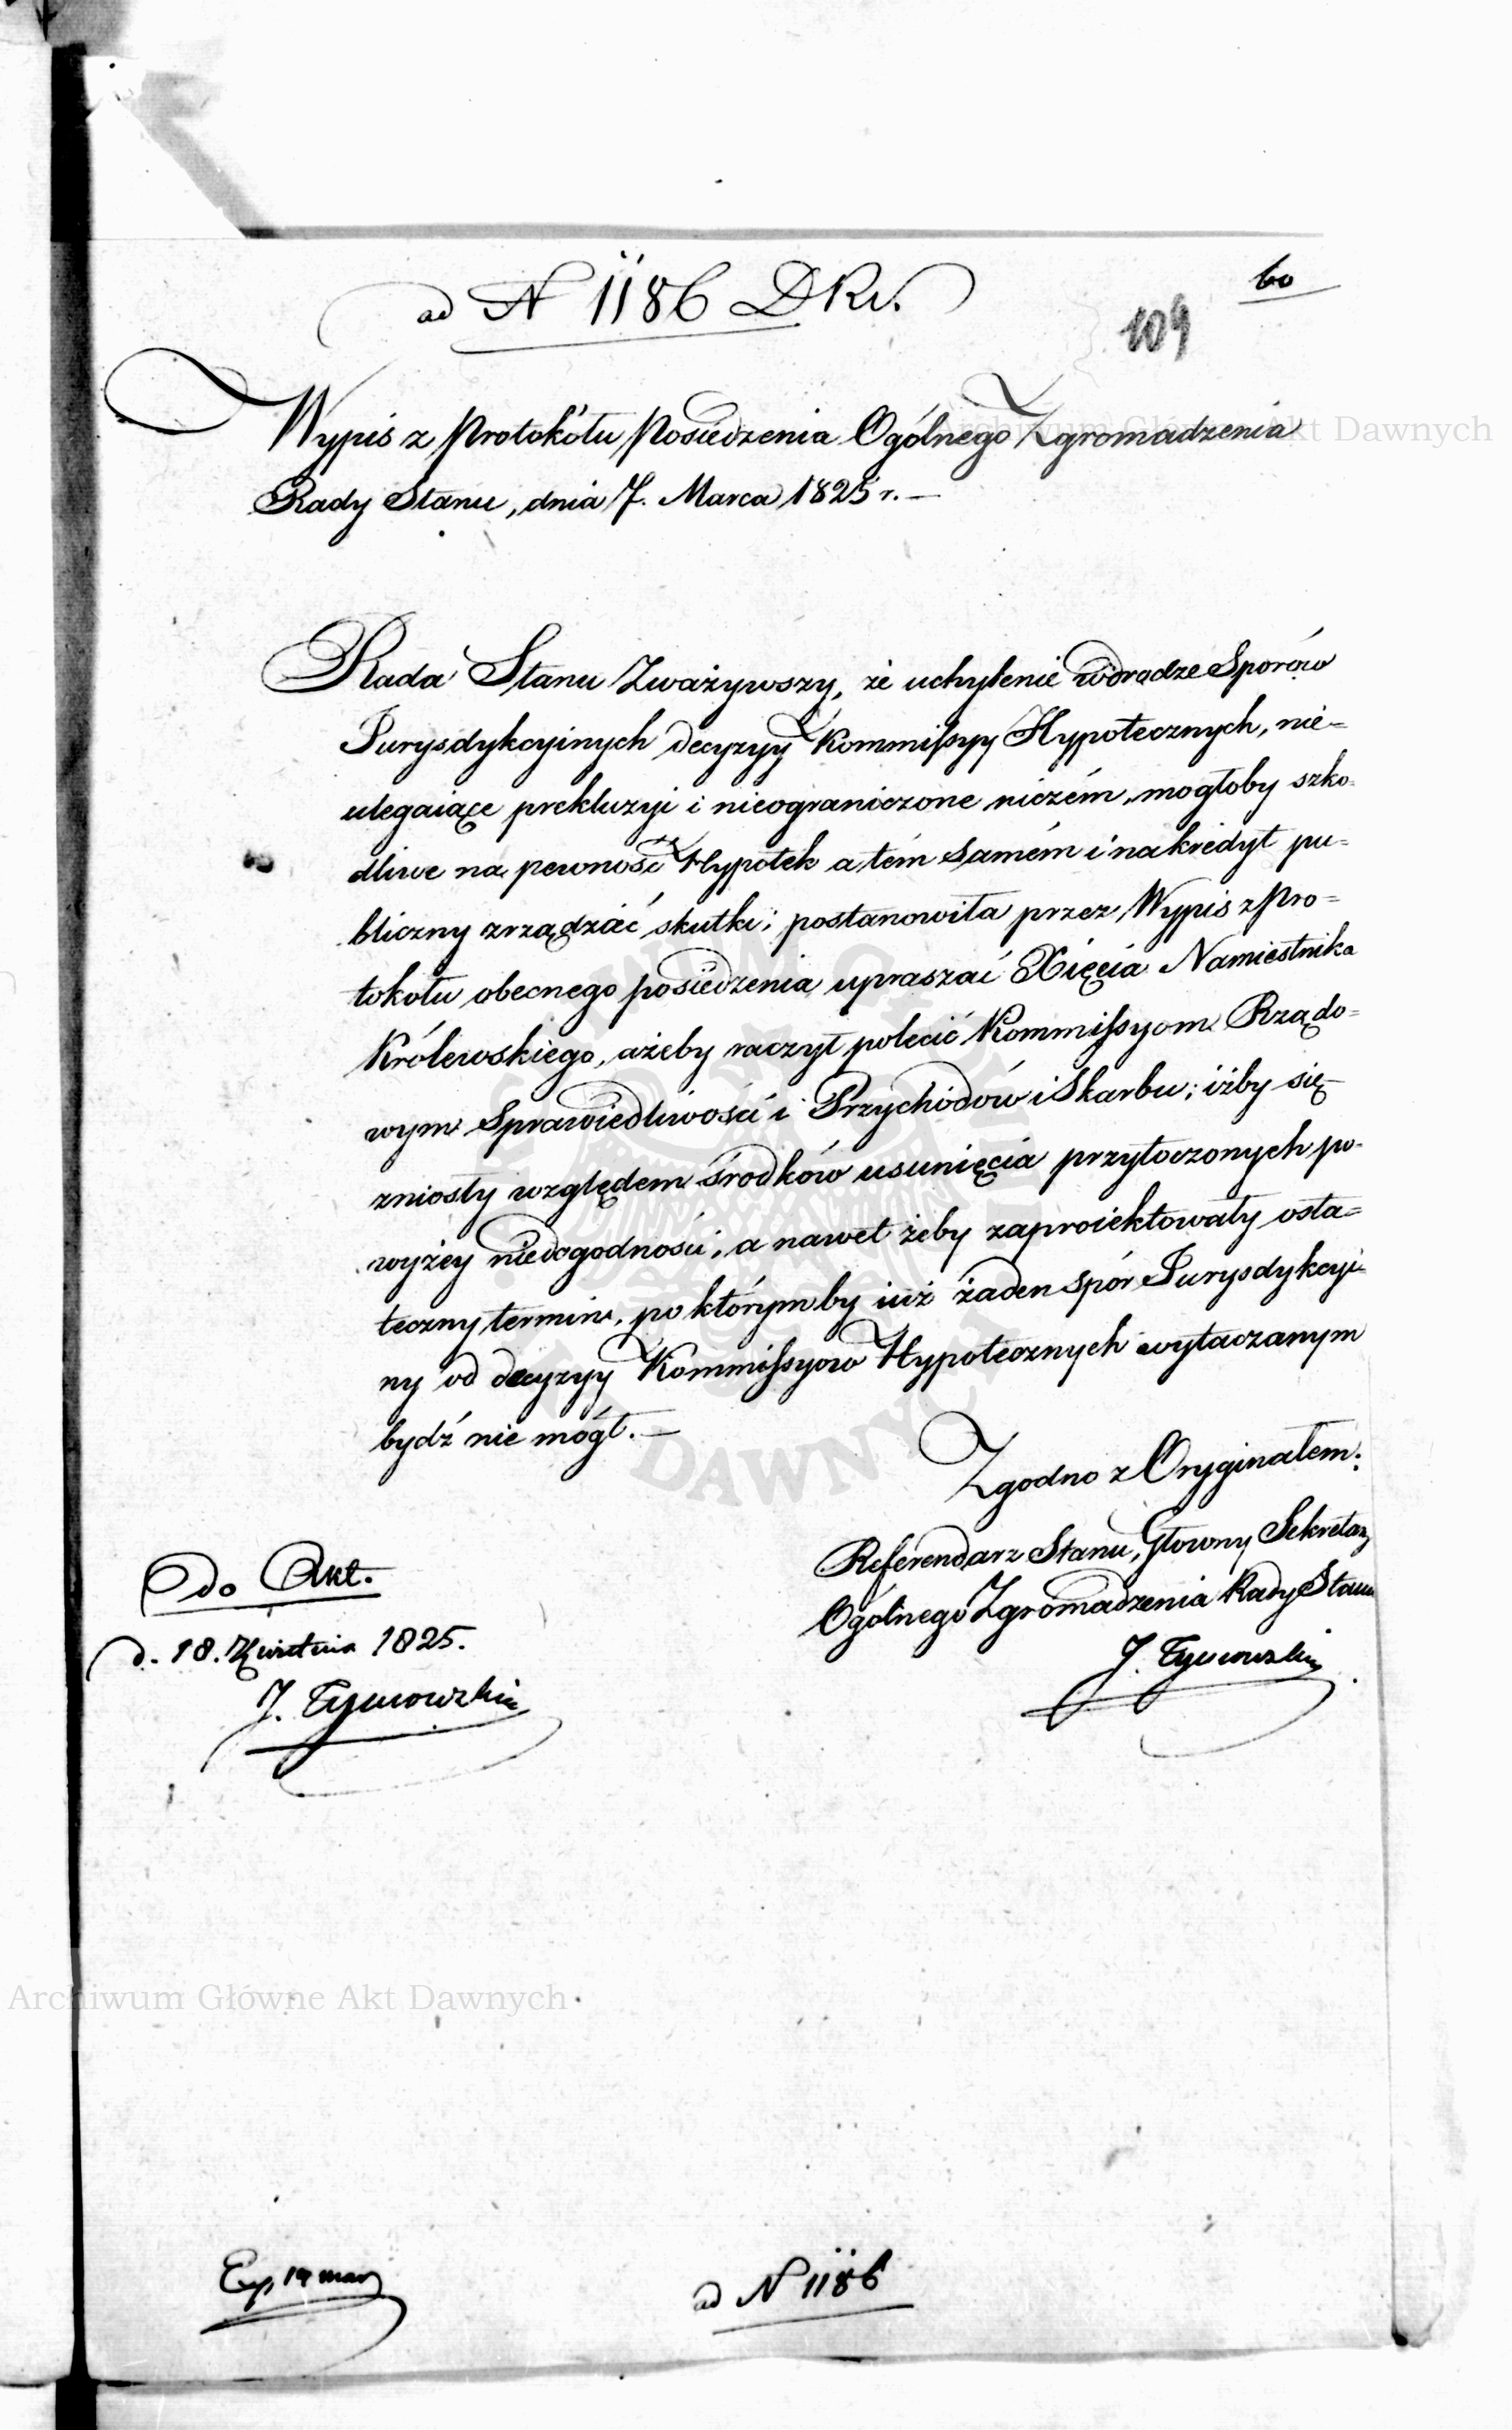 ad N 1186 DRS.
60
109
Wypis z Protokółu Posiedzenia Ogólnego Zgromadzenia
Rady Stanu, dnia 7. Marca 1825 r. —
Rada Stanu Zważywszy, że uchylenie w drodze Sporów
Jurysdykcyinych decyzyy Kommissyy Hypotecznych, nie=
ulegaiące prekluzyi i nieograniczone niczém, mogłoby szko=
dliwe na pewność Hypotek a tém samém i na kredyt pu=
bliczny zrządzić skutki; postanowiła przez Wypis z Pro=
tokółu obecnego posiedzenia upraszać Xięcia Namiestnika
Królewskiego, ażeby raczył polecić Kommissyom Rządo=
wym Sprawiedliwości i Przychodów i Skarbu; iżby się
zniosły względem środków usunięcia przytoczonych po=
wyżey niedogodności, a nawet żeby zaproiektowały osta=
teczny termin, po którym by iuż żaden spór Jurysdykcyi=
ny od decyzyy Kommissyow Hypotecznych wytaczanym
bydź nie mógł. —
Zgodno z Oryginałem:
Referendarz Stanu, Głowny Sekretarz
Ogólnego Zgromadzenia Rady Stanu
J. Tymowski
Do Akt.
d. 18. Kwietnia 1825.
J. Tymowski
Exp. 14 mar
ad N 1186
Archiwum Główne Akt Dawnych
Archiwum Główne Akt Dawnych